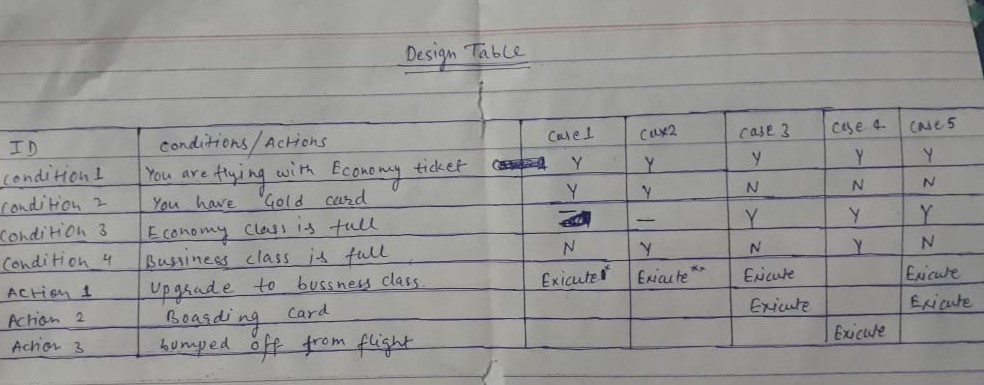 Design Table
ID Conditions/Actions Case 1 Case 2 case 3 case 4 Case 5
Condition 1 You are flying with Economy ticket Y Y Y Y Y
Condition 2 You have Gold card Y Y N N N
Condition 3 Economy class is full — Y Y Y
Condition 4 Bussiness class is full N Y N Y N
Action 1 Upgrade to bussness class. Exicute* Exicute** Exicute Exicute
Action 2 Boarding card Exicute Exicute
Action 3 bumped off from flight Exicute